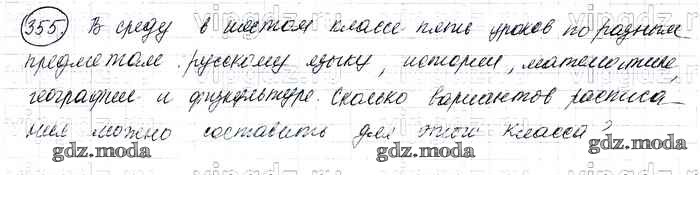 355. В среду в шестом классе пять уроков по разным
предметам: русскому языку, истории, математике,
географии и физкультуре. Сколько вариантов расписа-
ния можно составить для этого класса?
gdz.moda gdz.moda gdz.moda